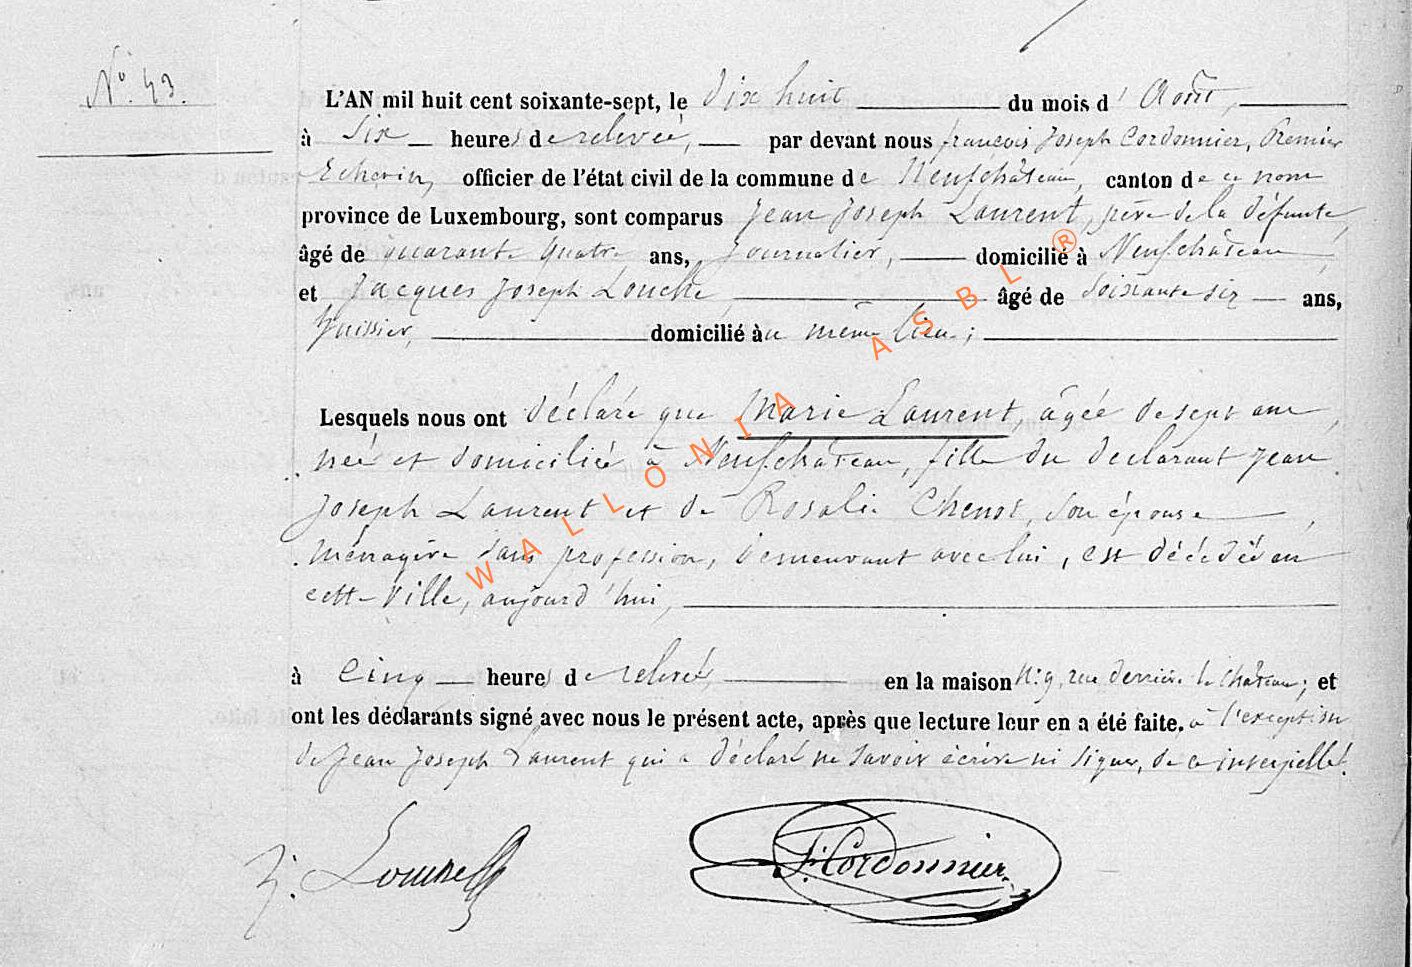 N° 43.
L'AN mil huit cent soixante-sept, le dix huit du mois d'Août,
à six heures de relevée, par devant nous françois Joseph Cordonnier, Premier
Echevin, officier de l'état civil de la commune de Neufchâteau, canton de ce nom
province de Luxembourg, sont comparus Jean Joseph Laurent, père de la défunte,
âgé de quarante quatre ans, Journalier, domicilié à Neufchâteau,
et Jacques Joseph âgé de soixante six ans,
huissier, domicilié au même lieu;
Lesquels nous ont déclaré que Marie Laurent, âgée de sept ans,
née et domiciliée à Neufchâteau, fille du declarant Jean
Joseph Laurent et de Rosalie Chenot, son épouse,
ménagère sans profession, demeurant avec lui, est décédée en
cette ville, aujourd'hui,
à cinq heures de relevée, en la maison N° 9, rue derrière le château; et
ont les déclarants signé avec nous le présent acte, après que lecture leur en a été faite. à l'exception
de Jean Joseph Laurent qui a déclaré ne savoir écrire ni signer, de ce interpellé.
F. Cordonnier
WALLONIA ASBL ®